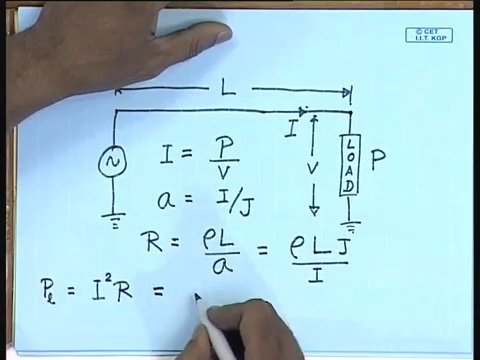 © CET
I.I.T. KGP
L
I
I = P/V
V
LOAD
P
a = I/J
R = ρL/a = ρLJ/I
Pₗ = I²R =